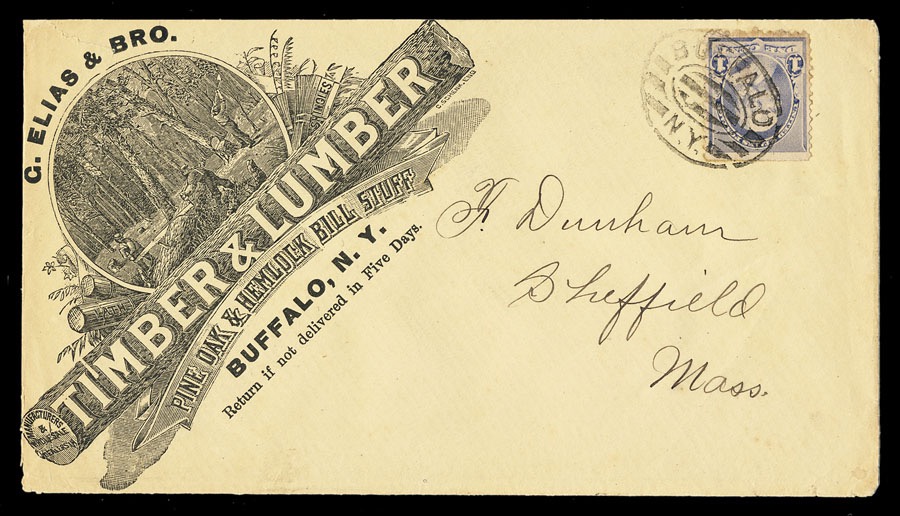 G. ELIAS & BRO.
SHINGLES
TIMBER & LUMBER
LATH
PINE OAK & HEMLOCK BILL STUFF
BUFFALO, N. Y.
Return if not delivered in Five Days.
MANUFACTURERS
&
WHOLESALE
DEALERS IN
BUFFALO
N.Y.
1 1
F. Dunham
Sheffield
Mass.